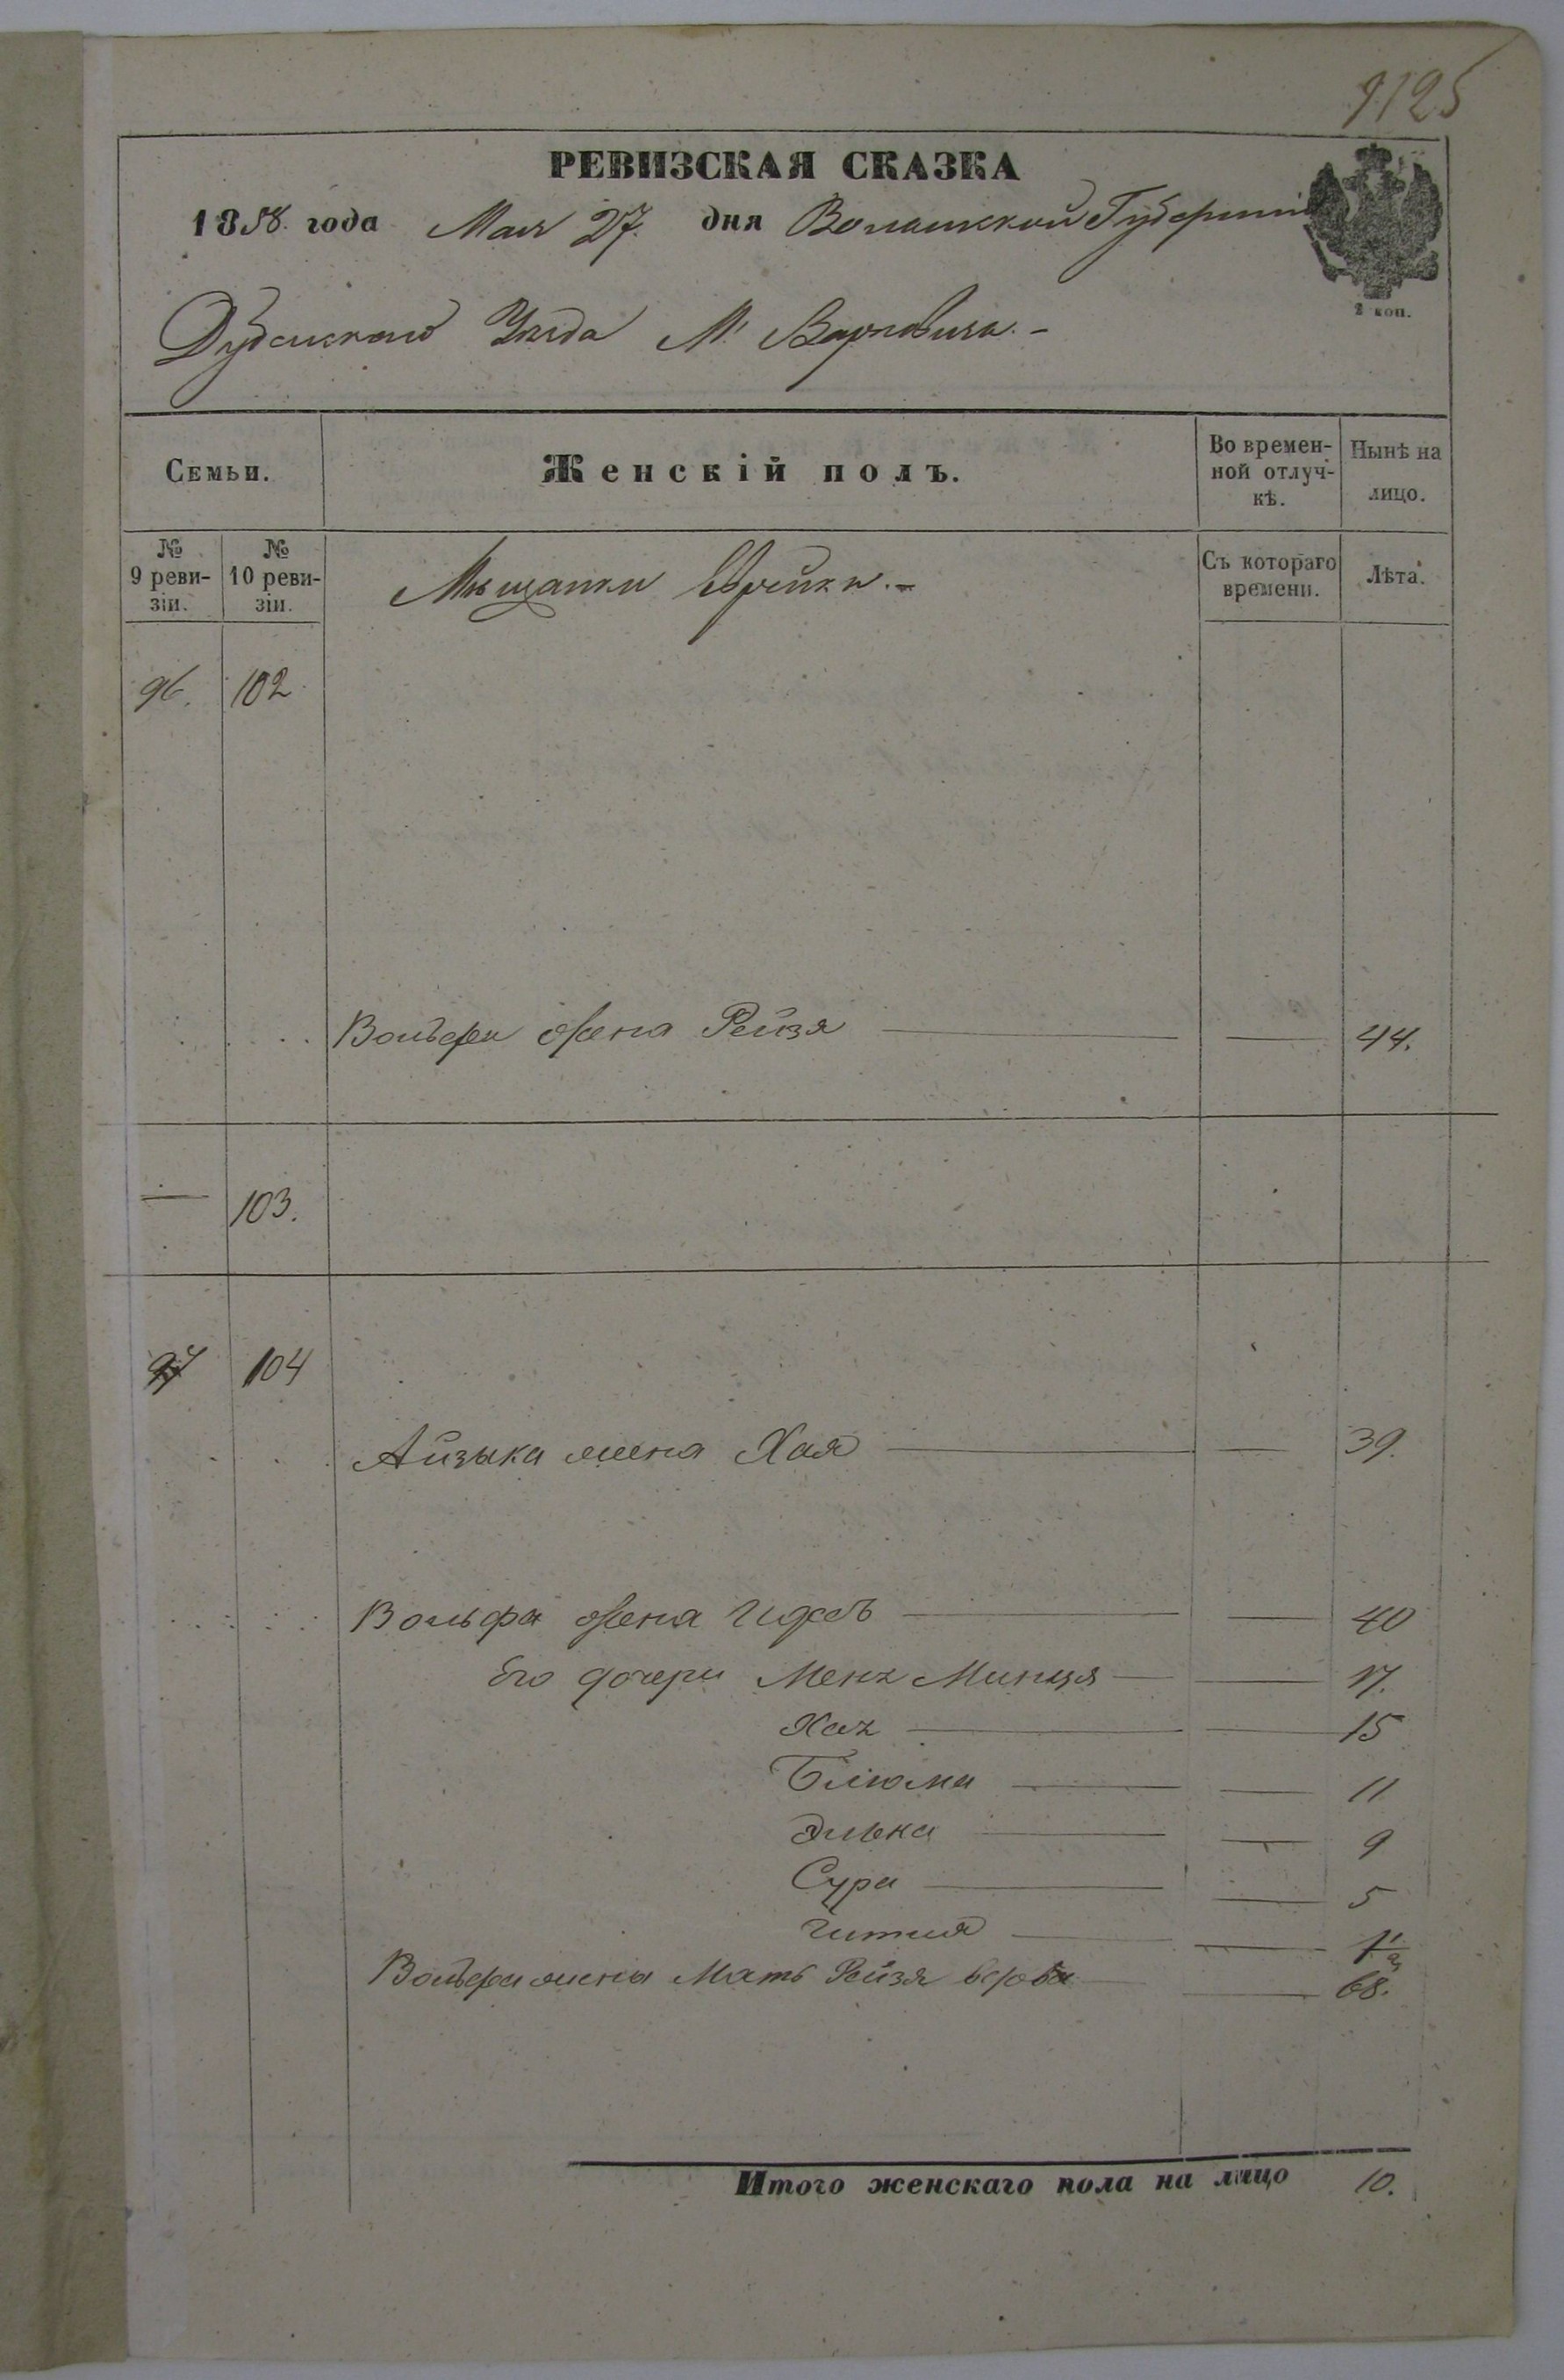 9125
РЕВИЗСКАЯ СКАЗКА
1858. года Мая 27. дня Волынской Губерніи
2 коп.
Дубенскаго Уѣзда М. Варковичь. -
Семьи.
Женскій полъ.
Во времен-
ной отлуч-
кѣ.
Нынѣ на
лицо.
№
9 реви-
зіи.
№
10 реви-
зіи.
Мѣщанки Еврейки. -
Съ котораго
времени.
Лѣта.
96. 102
Вольфа жена Рейзя — — 44.
— 103.
97 104
Айзыка жена Хая — — 39.
Вольфа жена — — 40
Его дочери Минця — — 17.
Хая — — 15
Блюма — — 11
Элька — — 9
Сура — — 5
Гитля — — 1
Вольфа жены Мать Рейзя — 68.
Итого женскаго пола на лицо 10.